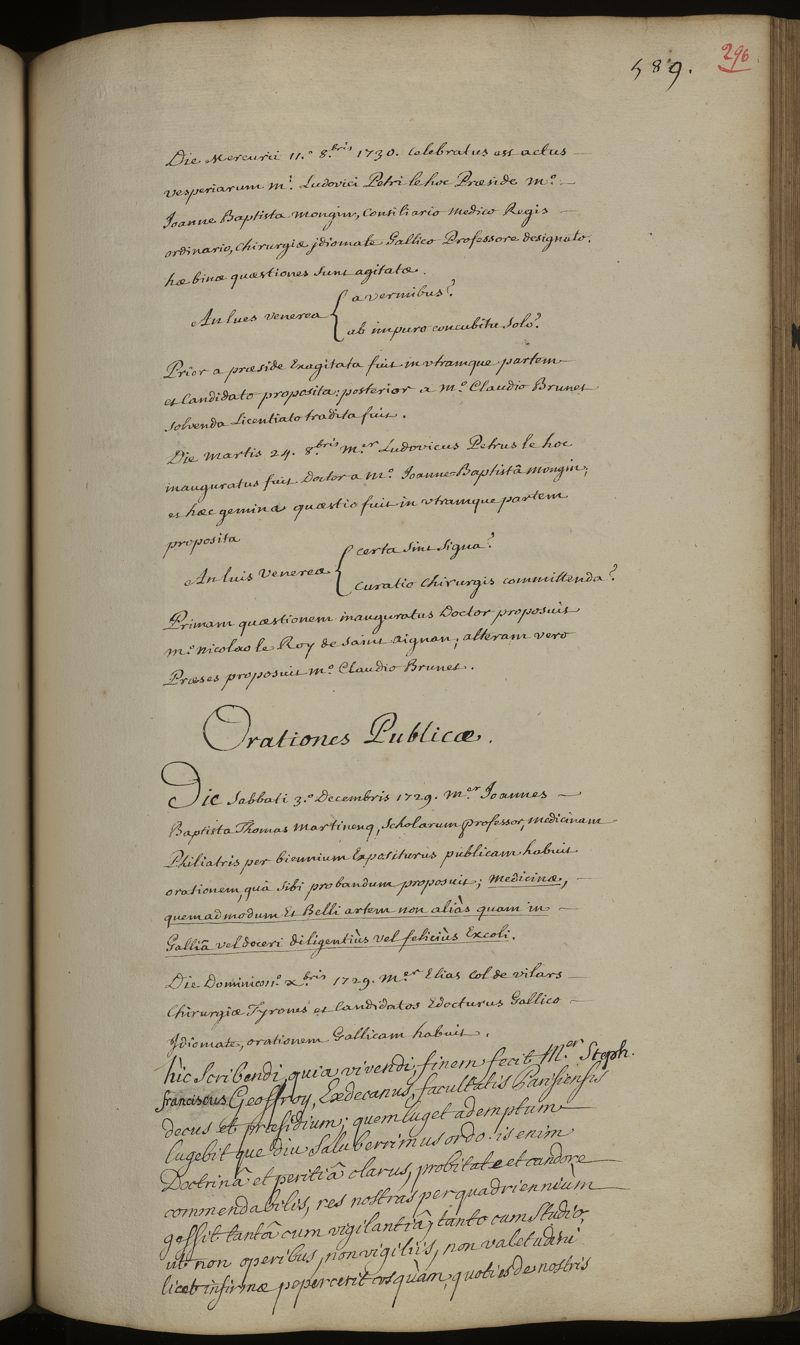 589.
296
Die Mercurii 11.º 8.bris 1730. Celebratus est actus
Vesperiarum m.i Ludovici Petri le hoc Præside m.º
Joanne Baptista Mongin, Consiliario Medico Regis
ordinario, Chirurgiæ jdiomate Gallico Professore designato.
hæ binæ quæstiones sunt agitatæ.
An lues venerea { a vermibus?
ab impuro concubitu solo?
Prior a præside Exagitata fuit in vtramque partem
et Candidato proposita; posterior a m.º Claudio Brunet
solvenda Licentiato tradita fuit.
Die Martis 24. 8.bris m.er Ludovicus Petrus le hoc
inauguratus fuit Doctor a m.º Joanne-Baptistâ Mongin;
et hæc gemina quæstio fuit in vtramque partem
proposita
An luis venereæ { certa sint signa?
Curatio Chirurgis committenda?
Primam quæstionem inauguratus Doctor proposuit
m.º Nicolao le Roy de Saint aignan; alteram vero
Præses proposuit m.º Claudio Brunet.
Orationes Publicæ.
Die Sabbati 3.º Decembris 1729. M.er Joannes
Baptista Thomas Martinenq, Scholarum professor, Medicinam
Philiatris per biennium Expositurus publicam habuit
orationem, quâ sibi probandum proposuit; Medicinæ,
quemadmodum Et Belli artem non aliàs quam in
Galliâ vel doceri diligentiùs vel feliciùs Excoli.
Die Dominico x.bris 1729. M.er Elias Col de vilars
Chirurgiæ Tyrones et Candidatos Edocturus Gallico
Jdiomate, orationem Gallicam habuit.
hic Scribendi, quia vivendi, finem fecit M.er Steph.
franciscus Geoffroy, Exdecanus, facultatis Parisiensis
decus et præsidium; quem luget ademptum
lugebit que diu Saluberrimus ordo. is enim
Doctrinâ et peritiâ clarus, probitate et candore
commendabilis, res nostras per quadriennium
gessit tantâ cum vigilantiâ, tanto cum studio,
ut non operibus, non vigiliis, non valetudini
licet infirmæ pepercerit usquàm, quoties de nostris